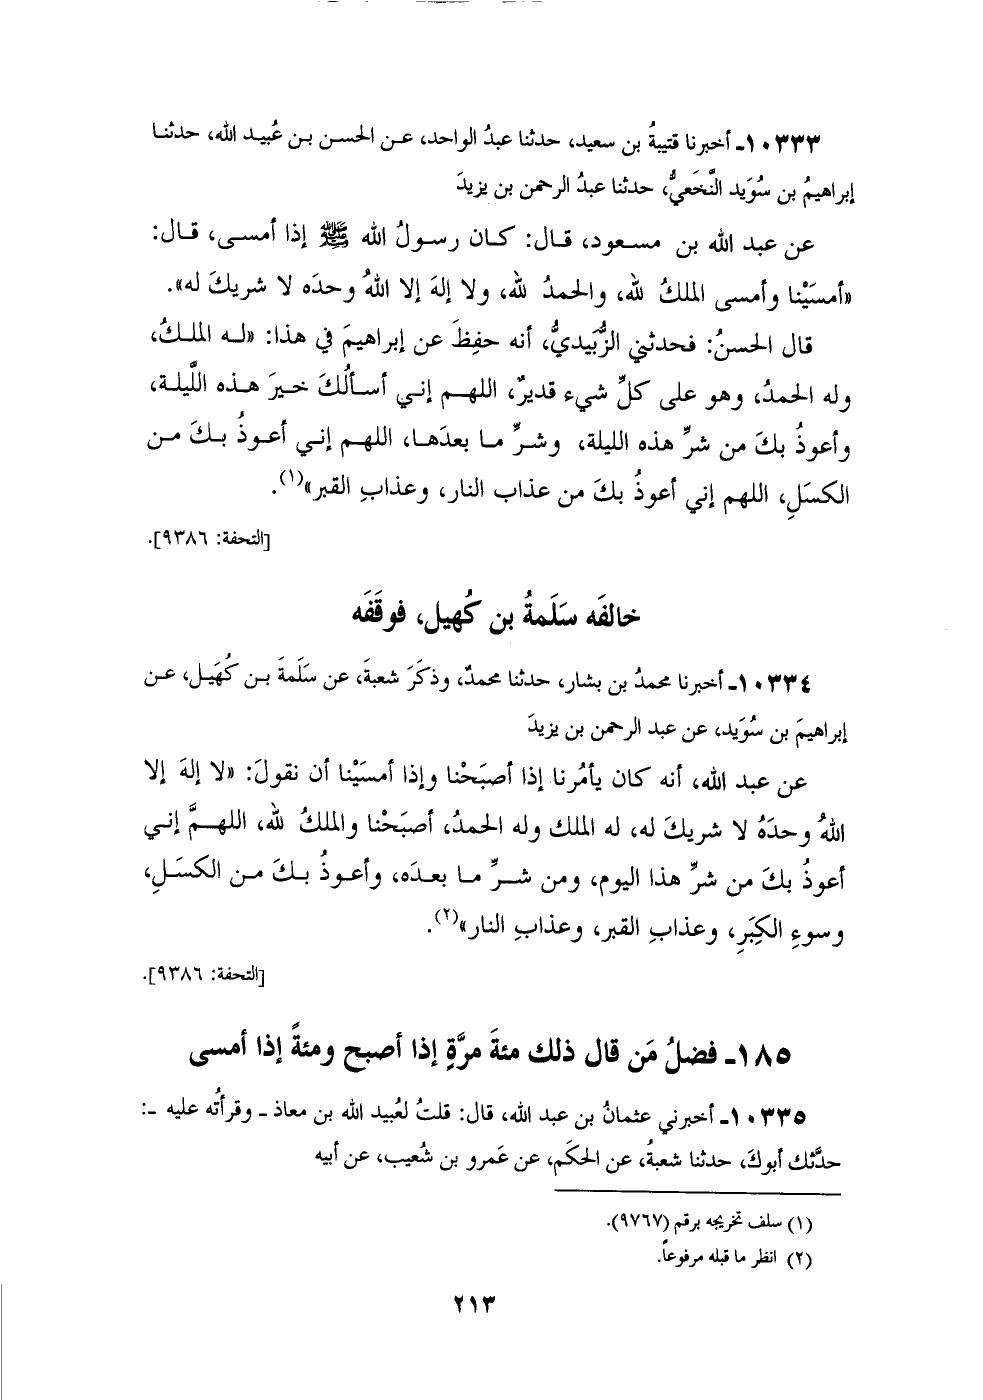 ١٠٣٣٣ـ أخبرنا قتيبةُ بن سعيد، حدثنا عبدُ الواحد، عـن الحسـن بـن عُبيـد الله، حدثنـا
إبراهيمُ بن سُوَيد النَّخَعيُّ، حدثنا عبدُ الرحمن بن يزيدَ
عن عبد الله بن مسـعود، قـال: كـان رسـولُ الله ﷺ إذا أمسـى، قـال:
«أمسَيْنا وأمسى الملكُ لله، والحمدُ لله، ولا إلهَ إلا اللهُ وحدَه لا شريكَ له».
قال الحسنُ: فحدثني الزُّبَيديُّ، أنه حفِظَ عن إبراهيمَ في هذا: «لـه الملـكُ،
وله الحمدُ، وهو على كلِّ شيء قديرٌ، اللهـم إنـي أسـألُكَ خـيرَ هـذه اللَّيلـة،
وأعوذُ بكَ من شرِّ هذه الليلة، وشرِّ مـا بعدَهـا، اللهـم إنـي أعـوذُ بـكَ مـن
الكسَلِ، اللهم إني أعوذُ بكَ من عذاب النار، وعذابِ القبر»(١).
[التحفة: ٩٣٨٦].
خالفَه سَلَمةُ بن كُهيل، فوقَفَه
١٠٣٣٤ـ أخبرنا محمدُ بن بشار، حدثنا محمدٌ، وذكَرَ شعبةَ، عن سَلَمةَ بـن كُهَيـل، عـن
إبراهيمَ بن سُوَيد، عن عبد الرحمن بن يزيدَ
عن عبد الله، أنه كان يأمُرنا إذا أصبَحْنا وإذا أمسَيْنا أن نقولَ: «لا إلهَ إلا
اللهُ وحدَهُ لا شريكَ له، له الملك وله الحمدُ، أصبَحْنا والملكُ لله، اللهـمَّ إنـي
أعوذُ بكَ من شرِّ هذا اليوم، ومن شـرِّ مـا بعـدَه، وأعـوذُ بـكَ مـن الكسَـلِ،
وسوءِ الكِبَرِ، وعذابِ القبر، وعذابِ النار»(٢).
[التحفة: ٩٣٨٦].
١٨٥ـ فضلُ مَن قال ذلك مئةَ مرَّةٍ إذا أصبح ومئةً إذا أمسى
١٠٣٣٥ـ أخبرني عثمانُ بن عبد الله، قال: قلتُ لعُبيد الله بن معاذ ـ وقرأتُه عليه ـ:
حدَّثك أبوكَ، حدثنا شعبةُ، عن الحكَم، عن عَمرو بن شُعيب، عن أبيه
(١) سلف تخريجه برقم (٩٧٦٧).
(٢) انظر ما قبله مرفوعاً.
٢١٣